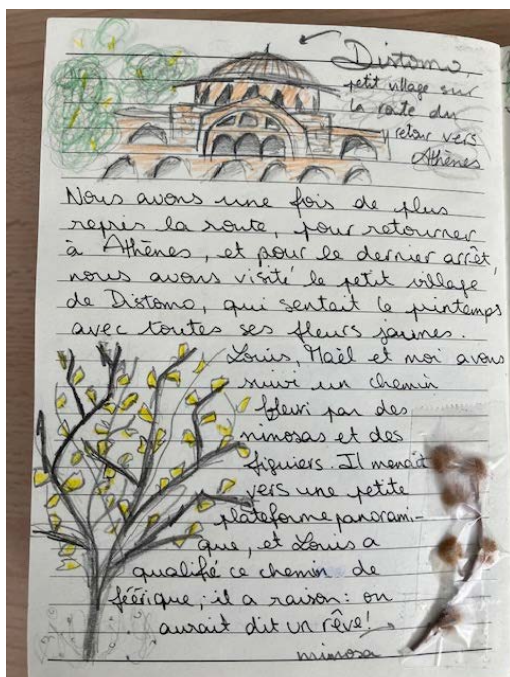 Distomo,
petit village sur
la route du
retour vers
Athènes
Nous avons une fois de plus
repris la route, pour retourner
à Athènes, et pour le dernier arrêt,
nous avons visité le petit village
de Distomo, qui sentait le printemps
avec toutes ses fleurs jaunes.
Louis, Maël et moi avons
suivi un chemin
fleuri par des
mimosas et des
figuiers. Il menait
vers une petite
plateforme panorami-
que, et Louis a
qualifié ce chemin de
féérique; il a raison: on
aurait dit un rêve!
mimosa